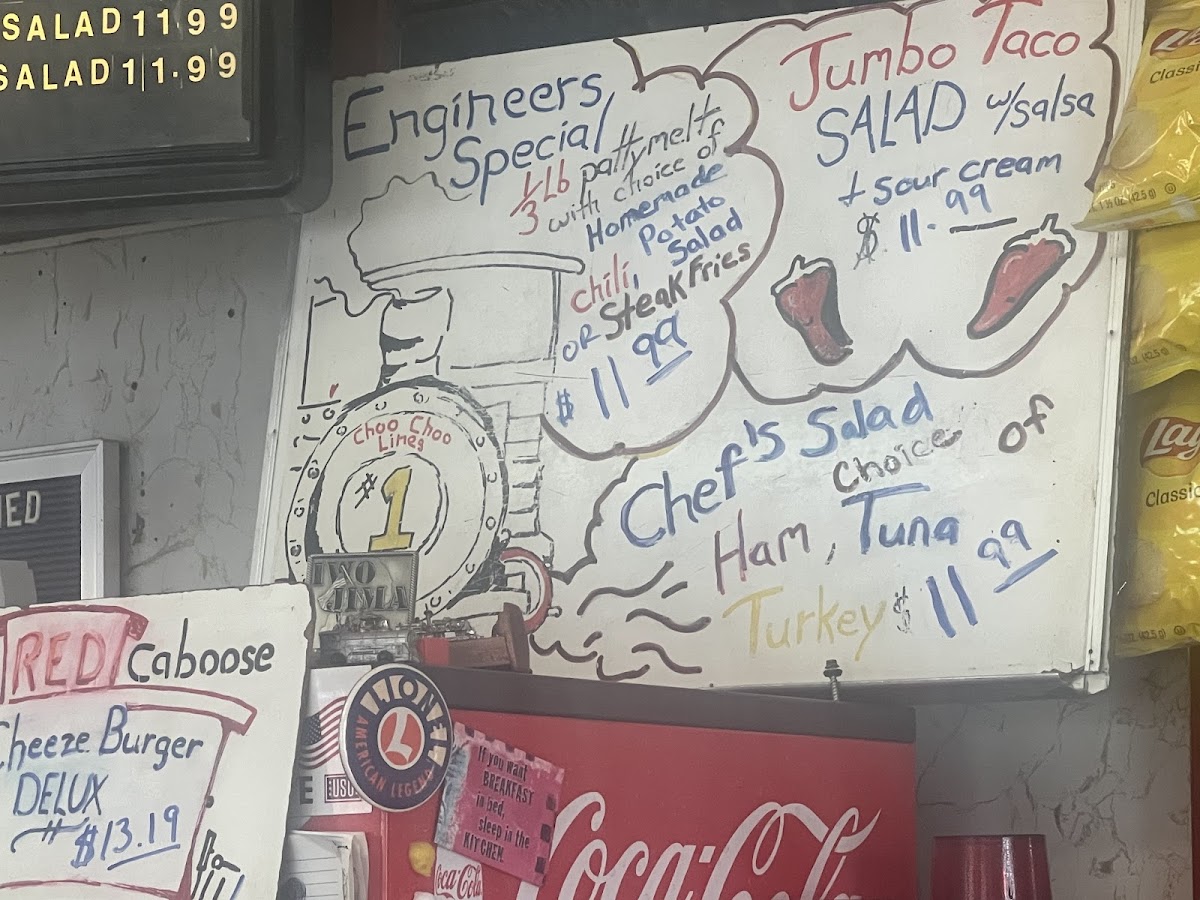 SALAD 11.99
SALAD 11.99
Engineers
Special
1/3 Lb pattymelt
with choice of
Homemade
Potato
Salad
chili,
OR Steak Fries
$ 11 99
Jumbo Taco
SALAD w/salsa
+ sour cream
$ 11.99
Choo Choo
Lines
#1
Chef's Salad
Choice of
Ham, Tuna
Turkey $ 11 99
RED Caboose
Cheeze Burger
DELUX
$13.19
LIONEL
L
AMERICAN LEGEND
If you want
BREAKFAST
in bed,
sleep in the
KITCHEN.
Coca-Cola
Coca-Cola
Classic
Lay's
Classic